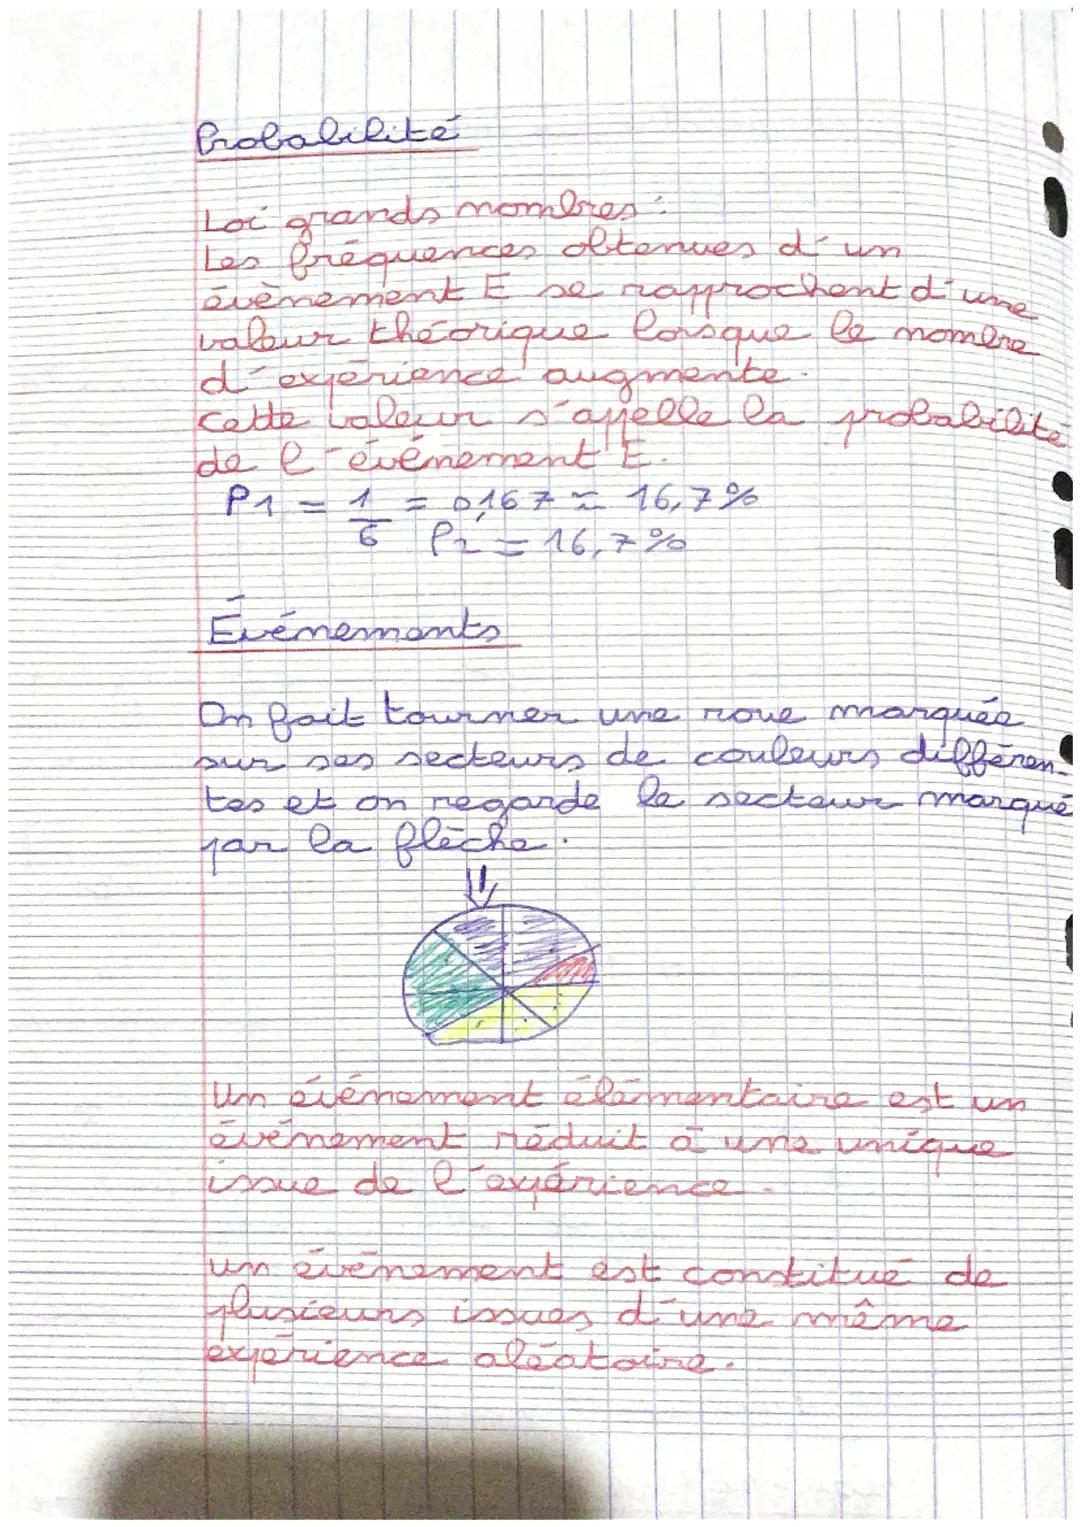 Probabilité
Loi grands nombres :
Les fréquences obtenues d'un
évènement E se rapprochent d'une
valeur théorique lorsque le nombre
d'expérience augmente.
Cette valeur s'appelle la probabilité
de l'événement E.
P1 = 1/6 = 0,167 ≈ 16,7%
P2 = 16,7%
Événements
On fait tourner une roue marquée
sur ses secteurs de couleurs différen-
tes et on regarde le secteur marqué
par la flèche.
Un événement élémentaire est un
événement réduit à une unique
issue de l'expérience.
un événement est constitué de
plusieurs issues d'une même
expérience aléatoire.